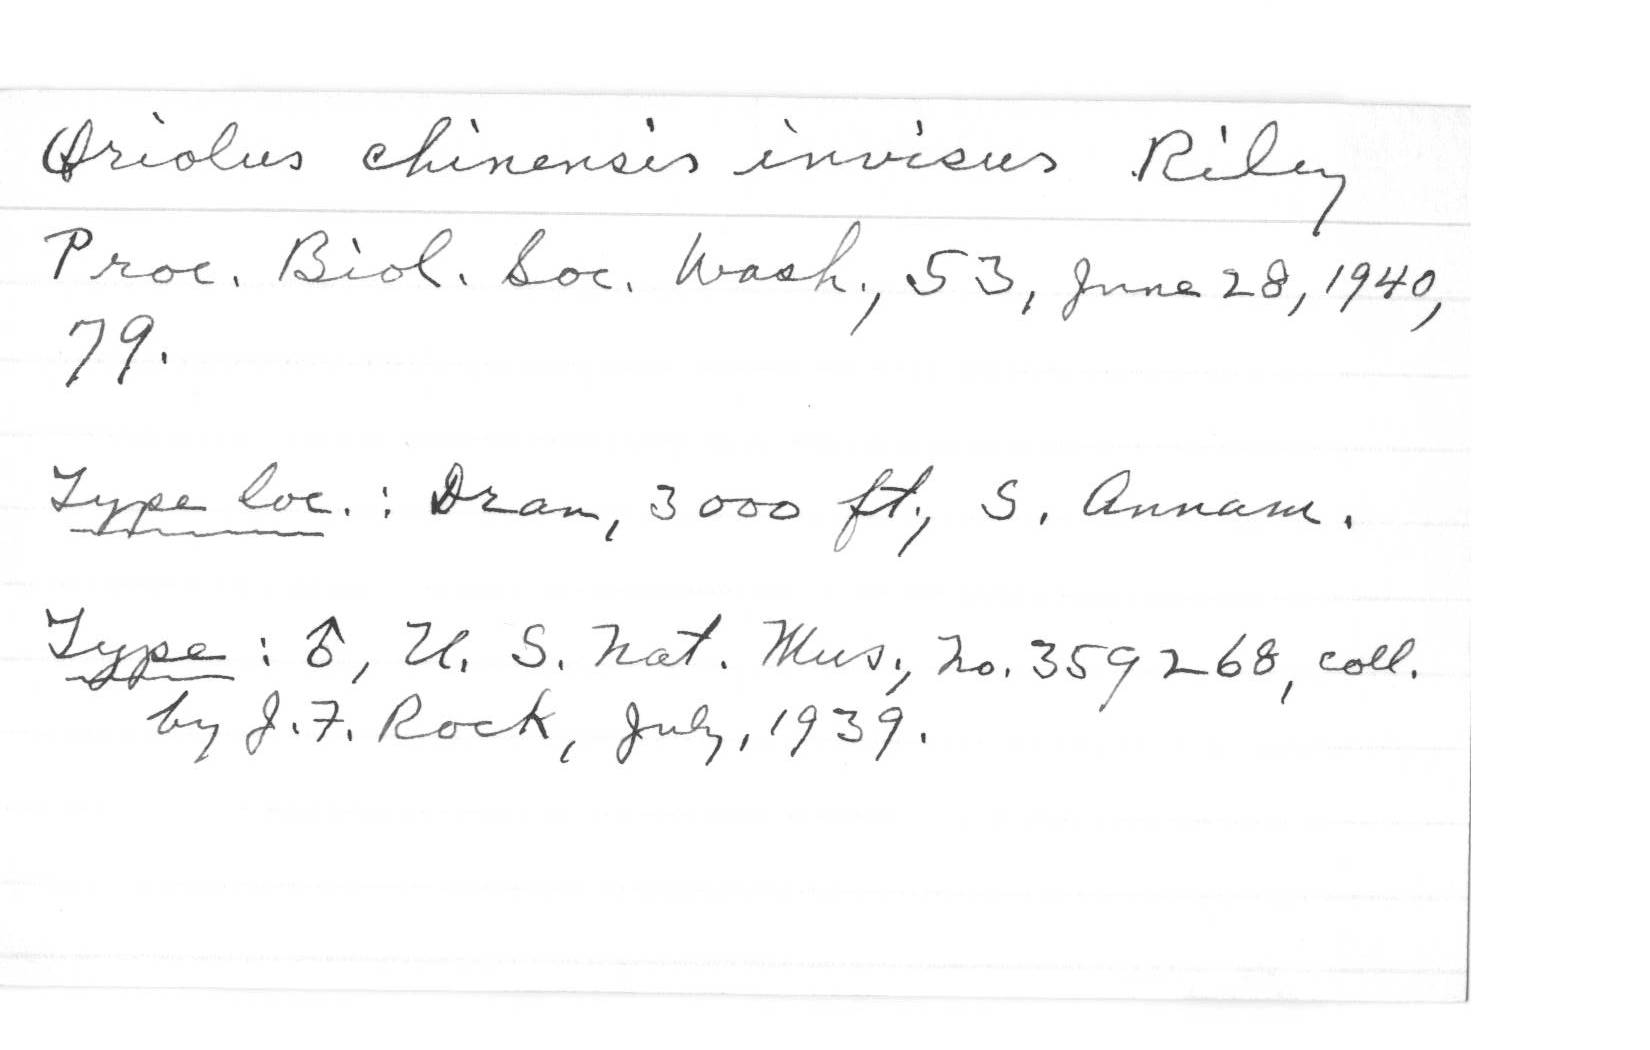 Oriolus chinensis invisus Riley
Proc. Biol. Soc. Wash., 53, June 28, 1940,
79.
Type loc. : Dran, 3000 ft., S. Annam.
Type : ♂, U. S. Nat. Mus., No. 359268, coll.
by J. F. Rock, July, 1939.